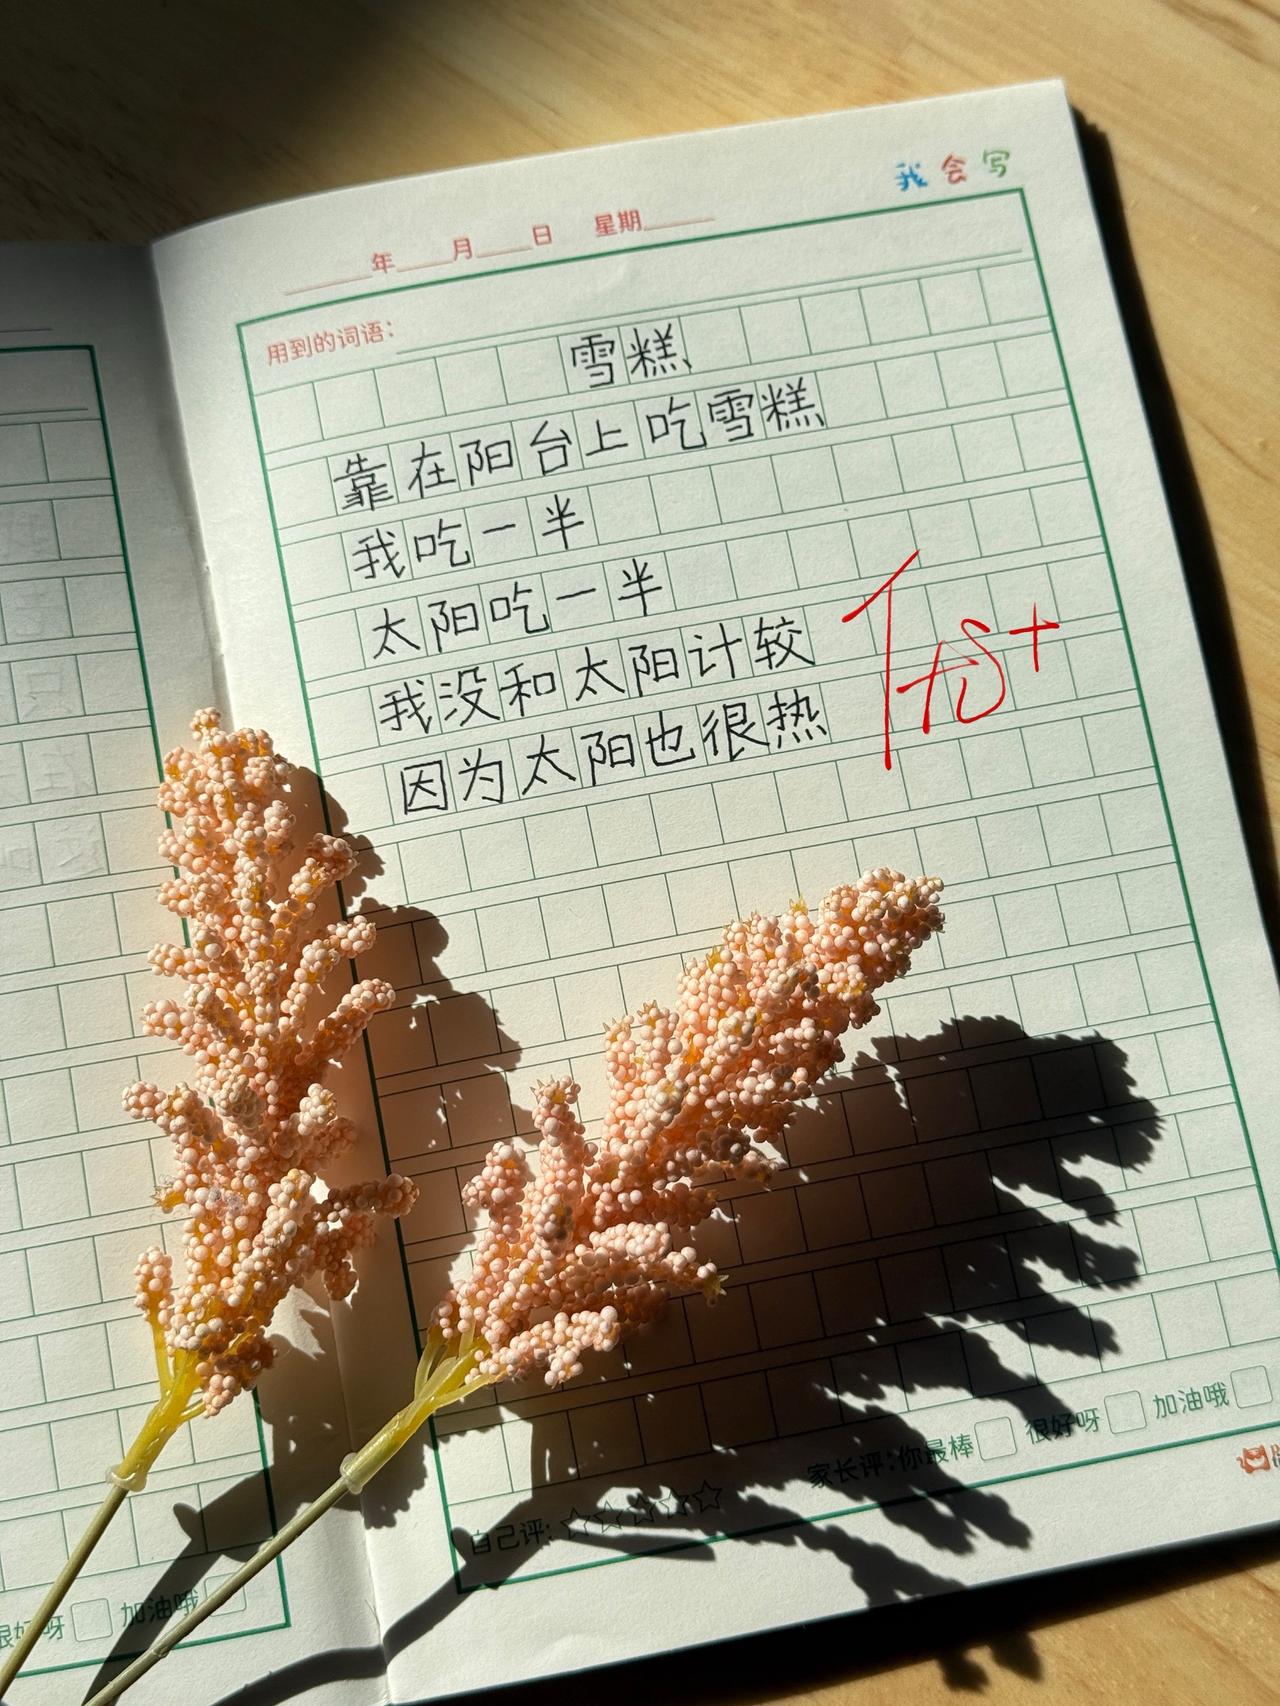 我会写
年 月 日 星期
用到的词语：
雪糕
靠在阳台上吃雪糕
我吃一半
太阳吃一半
我没和太阳计较
因为太阳也很热
优+
自己评：☆☆☆☆☆ 家长评：你最棒□ 很好呀□ 加油哦□
很好呀□ 加油哦□